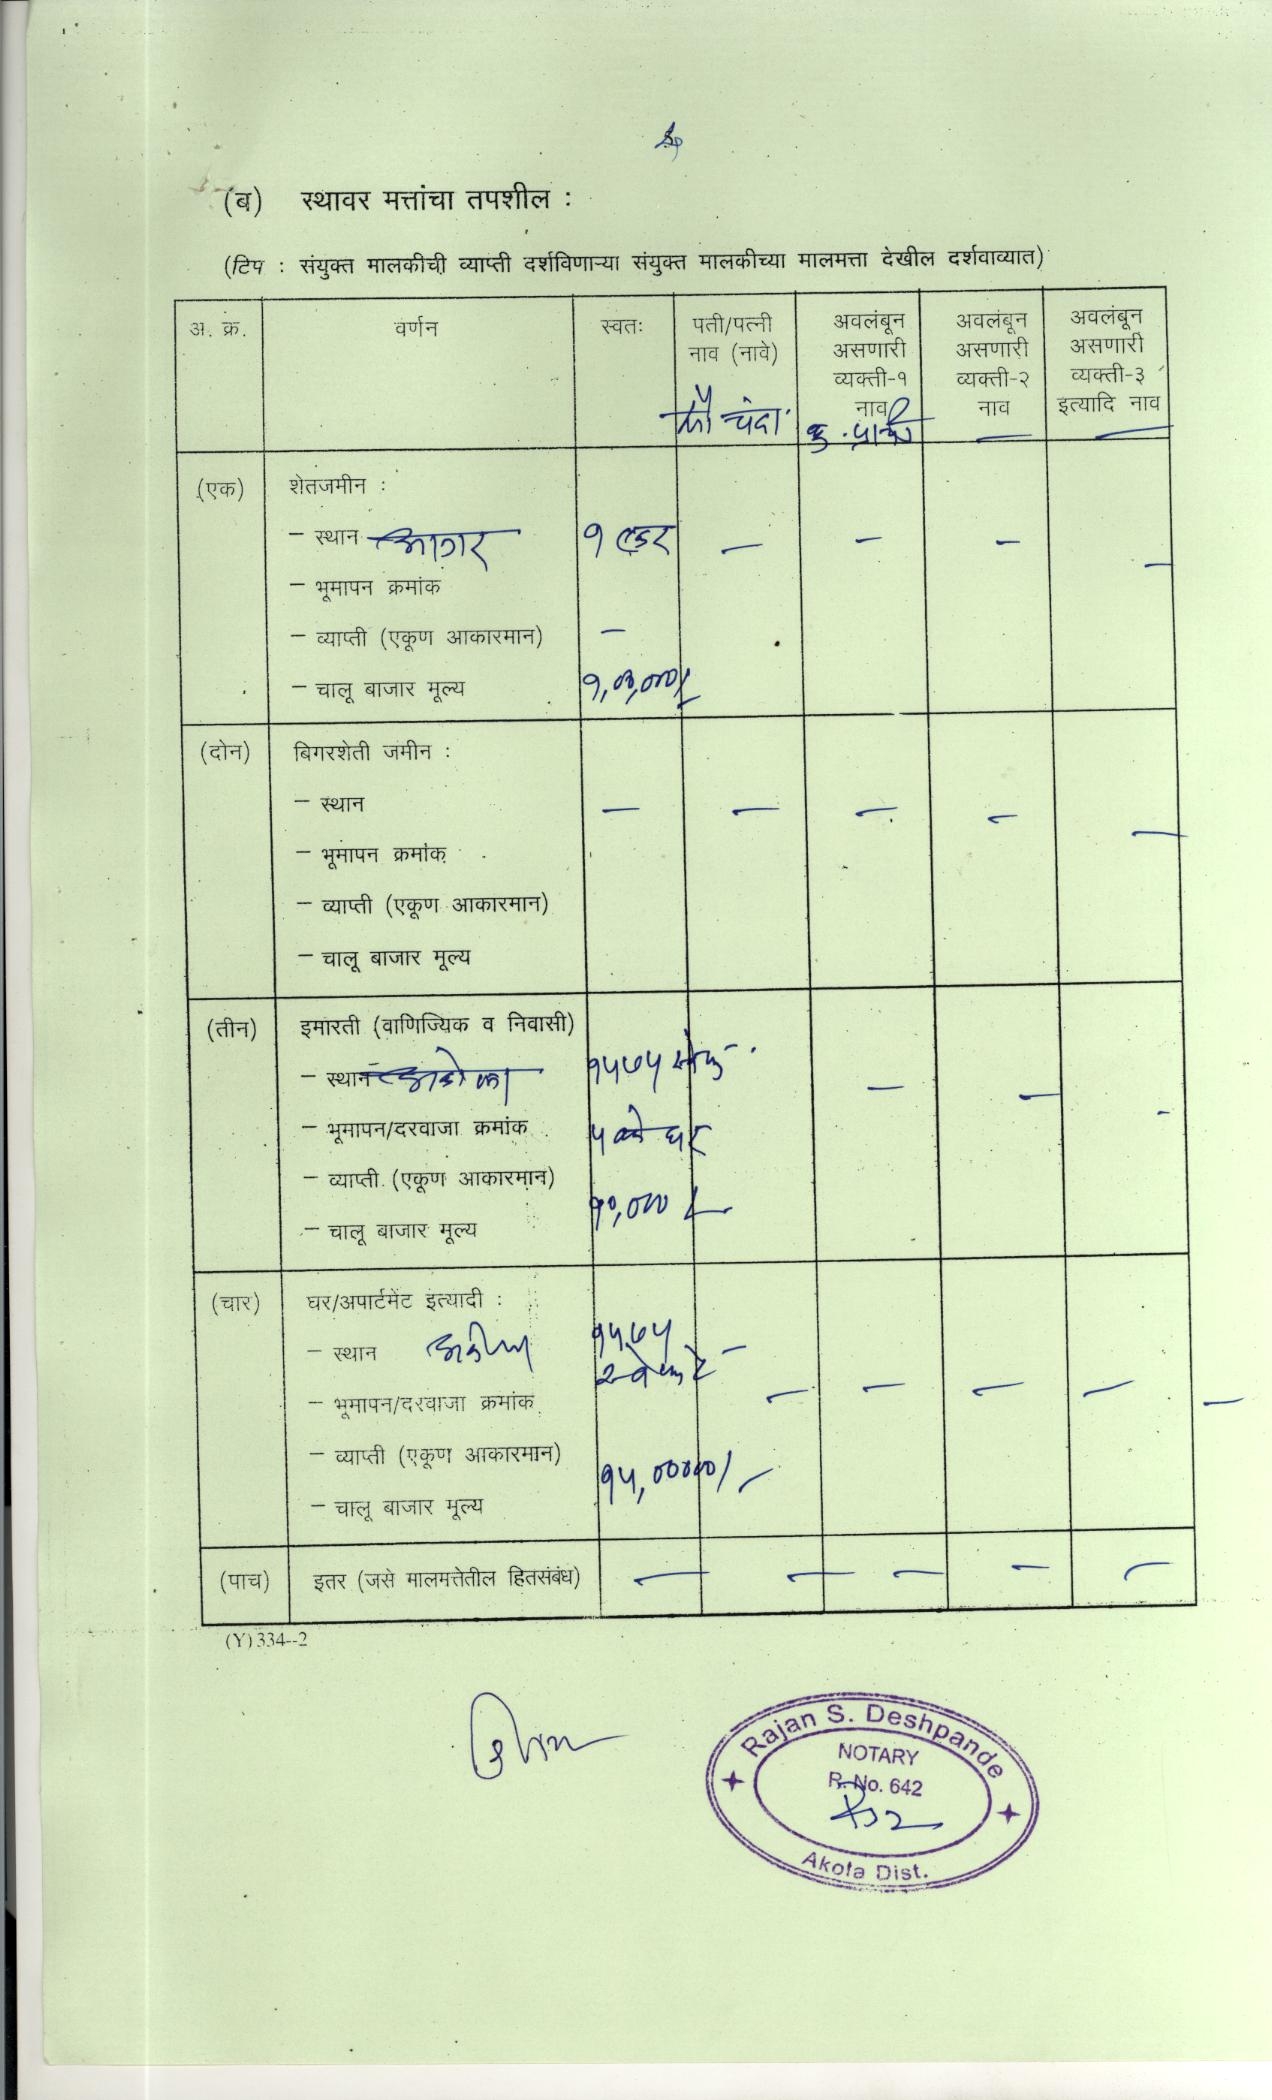 (ब) स्थावर मत्तांचा तपशील :
(टिप : संयुक्त मालकीची व्याप्ती दर्शविणाऱ्या संयुक्त मालकीच्या मालमत्ता देखील दर्शवाव्यात)
अ. क्र. वर्णन स्वतः पती/पत्नी अवलंबून अवलंबून अवलंबून
नाव (नावे) असणारी असणारी असणारी
व्यक्ती-१ व्यक्ती-२ व्यक्ती-३
नाव नाव इत्यादि नाव
सौ चंदा कु. — —
(एक) शेतजमीन :
– स्थान आगर १ एकर — — — —
– भूमापन क्रमांक
– व्याप्ती (एकूण आकारमान) —
– चालू बाजार मूल्य
(दोन) बिगरशेती जमीन :
– स्थान — — — — —
– भूमापन क्रमांक
– व्याप्ती (एकूण आकारमान)
– चालू बाजार मूल्य
(तीन) इमारती (वाणिज्यिक व निवासी)
– स्थान अकोला १५७५ — — -
– भूमापन/दरवाजा क्रमांक घर
– व्याप्ती (एकूण आकारमान)
– चालू बाजार मूल्य
(चार) घर/अपार्टमेंट इत्यादी :
– स्थान अकोला १५७५ —
– भूमापन/दरवाजा क्रमांक — — — — —
– व्याप्ती (एकूण आकारमान)
– चालू बाजार मूल्य
(पाच) इतर (जसे मालमत्तेतील हितसंबंध) — — — — —
(Y) 334--2
Rajan S. Deshpande
NOTARY
R. No. 642
Akola Dist.